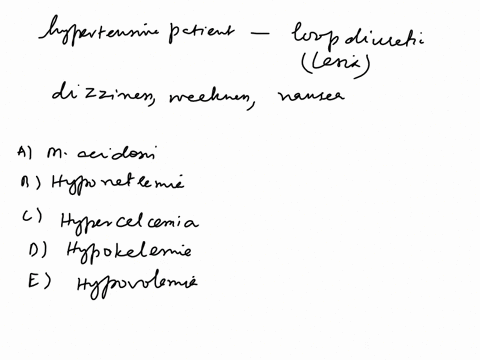 hypertensive patient — loop diuretic
(Lesix)
dizziness, weeknes, nausea
A) M. acidosi
B) Hyponetlemie
C) Hypercelcemia
D) Hypokelemie
E) Hypovolemie